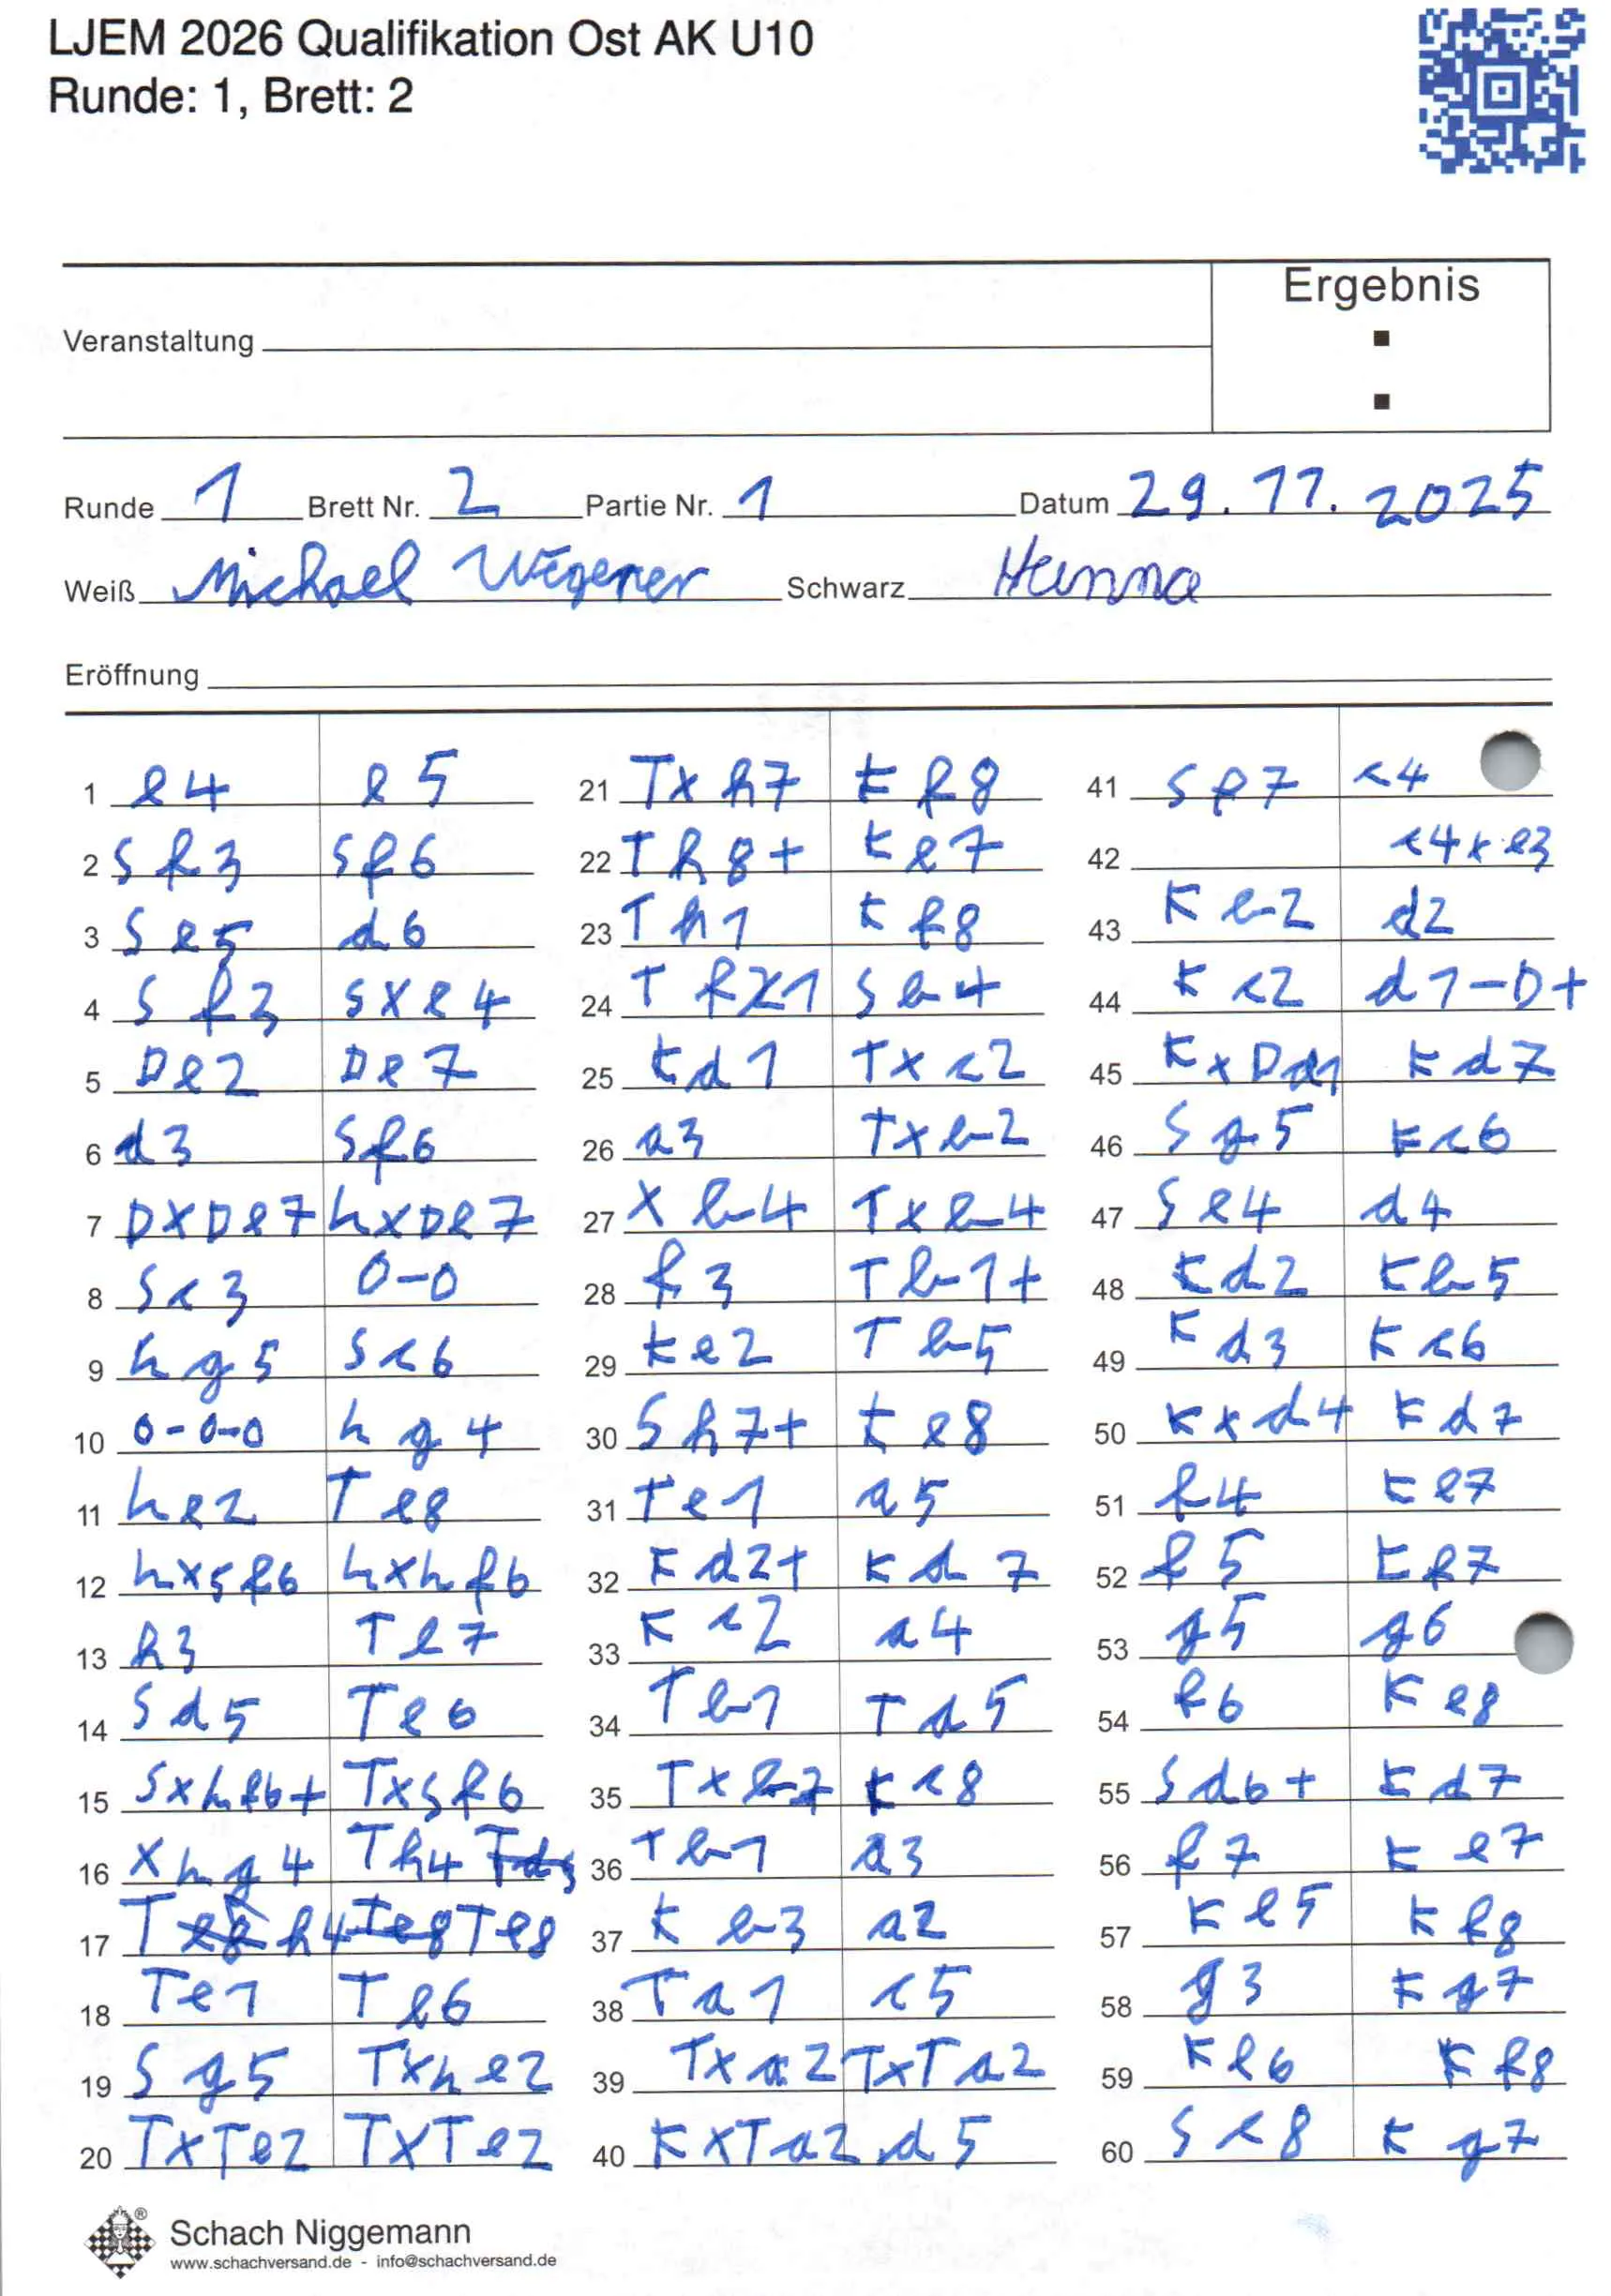 LJEM 2026 Qualifikation Ost AK U10
Runde: 1, Brett: 2
Ergebnis
Veranstaltung
Runde 1 Brett Nr. 2 Partie Nr. 1 Datum 29.11.2025
Weiß Michael Wegener Schwarz Hanna
Eröffnung
1 e4 e5
2 Sf3 Sf6
3 Se5 d6
4 Sf3 Sxe4
5 De2 De7
6 d3 Sf6
7 DxDe7 LxDe7
8 Sc3 0-0
9 Lg5 Sc6
10 0-0-0 Lg4
11 Le2 Te8
12 LxSf6 LxLf6
13 h3 Te7
14 Sd5 Te6
15 SxLf6+ TxSf6
16 xLg4 Th4
17 T h4 Te8
18 Te1 Te6
19 Sg5 TxLe2
20 TxTe2 TxTe2
21 Txh7 Kf8
22 Th8+ Ke7
23 Th1 Kf8
24 T f1 Sb4
25 Kd1 Txc2
26 a3 Txb2
27 xb4 Txb4
28 f3 Tb1+
29 Ke2 Tb5
30 Sh7+ Ke8
31 Te1 a5
32 Kd2+ Kd7
33 Kc2 a4
34 Tb1 Td5
35 Txb7 Kc8
36 Tb1 a3
37 Kb3 a2
38 Ta1 c5
39 Txa2 TxTa2
40 KxTa2 d5
41 Sf7 c4
42 c4xe3
43 Kb2 d2
44 Kc2 d1-D+
45 KxDd1 Kd7
46 Sg5 Kc6
47 Se4 d4
48 Kd2 Kb5
49 Kd3 Kc6
50 Kxd4 Kd7
51 f4 Ke7
52 f5 Kf7
53 g5 g6
54 f6 Ke8
55 Sd6+ Kd7
56 f7 Ke7
57 Ke5 Kf8
58 g3 Kg7
59 Ke6 Kf8
60 Sc8 Kg7
Schach Niggemann
www.schachversand.de - info@schachversand.de